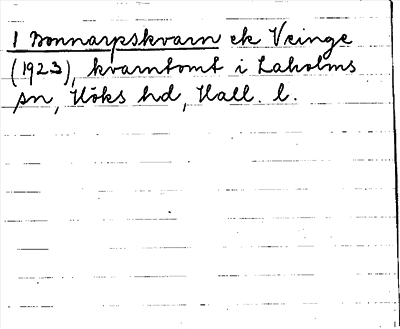 1 Bonnarpskvarn ek Veinge
(1923), kvarntomt i Laholms
sn, Höks hd, Hall. l.